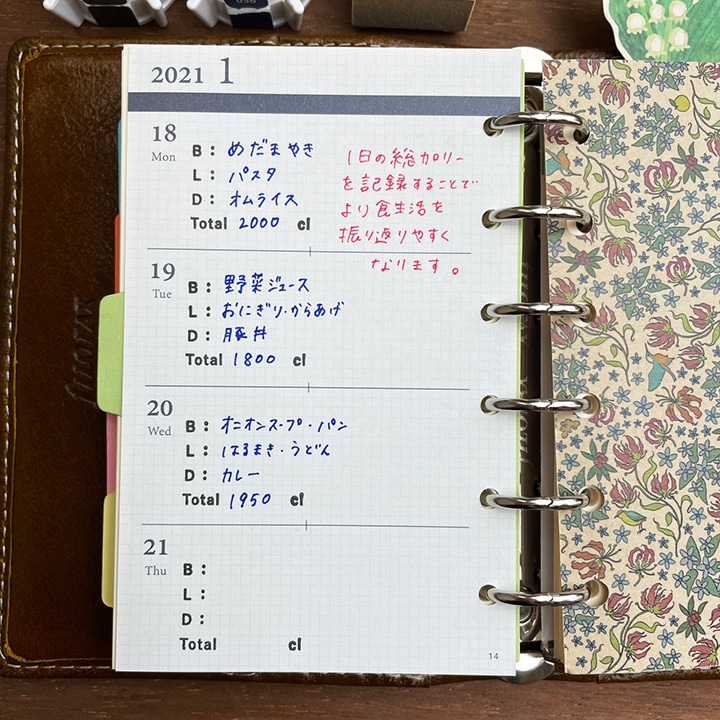 2021 1
18
Mon
B: めだまやき
L: パスタ
D: オムライス
Total 2000 cl
1日の総カロリー
を記録することで
より食生活を
振り返りやすく
なります。
19
Tue
B: 野菜ジュース
L: おにぎり・からあげ
D: 豚丼
Total 1800 cl
20
Wed
B: オニオンスープ・パン
L: はるまき・うどん
D: カレー
Total 1950 cl
21
Thu
B:
L:
D:
Total cl
14
filofax